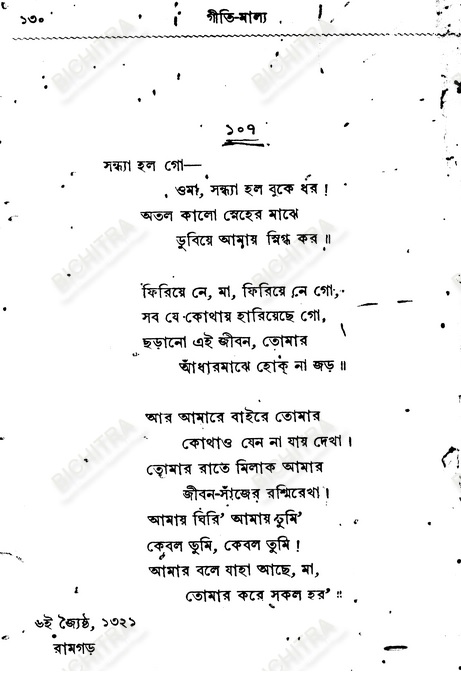 ১৩০ গীতি-মাল্য
১০৭
সন্ধ্যা হল গো—
ওমা, সন্ধ্যা হল বুকে ধর !
অতল কালো স্নেহের মাঝে
ডুবিয়ে আমায় স্নিগ্ধ কর ॥
ফিরিয়ে নে, মা, ফিরিয়ে নে গো,
সব যে কোথায় হারিয়েছে গো,
ছড়ানো এই জীবন, তোমার
আঁধারমাঝে হোক্ না জড় ॥
আর আমারে বাইরে তোমার
কোথাও যেন না যায় দেখা ।
তোমার রাতে মিলাক আমার
জীবন-সাঁজের রশ্মিরেখা ।
আমায় ঘিরি’ আমায় চুমি’
কেবল তুমি, কেবল তুমি !
আমার বলে যাহা আছে, মা,
তোমার করে সকল হর’ ॥
৬ই জ্যৈষ্ঠ, ১৩২১
রামগড়
BICHITRA
BICHITRA
BICHITRA
BICHITRA
BICHITRA
BICHITRA